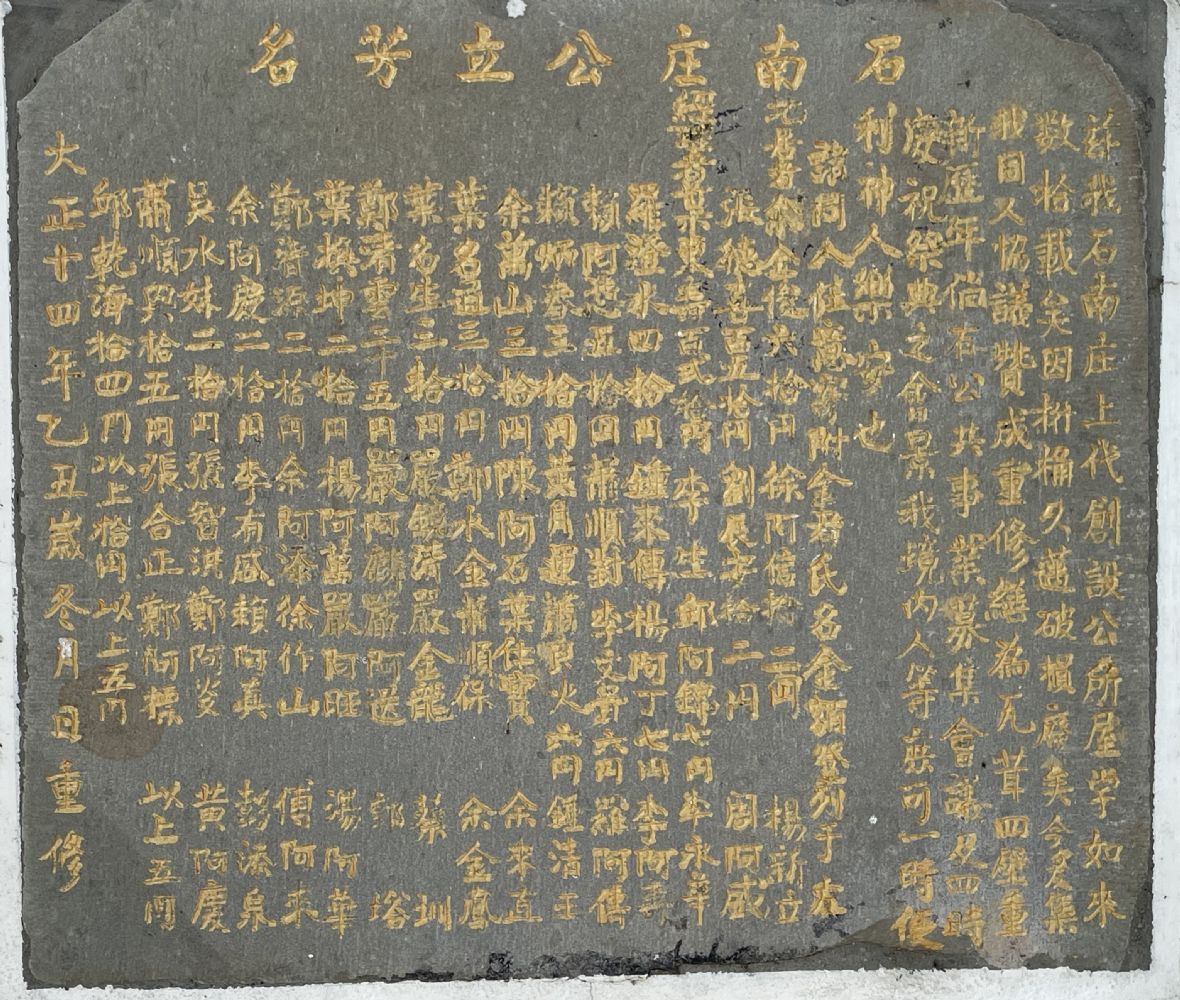 石南庄公立芳名
我石南庄上代創設公所屋学如來
数拾載矣因桷久破損廢矣今集
我同人恊議賛成重修繕為瓦茸四壁重
新歷年倘有公共事業募集會議及四時
慶祝祭典之會景我境内人等庶可一時便
利神人樂安也
諸同人仕寄附金君氏名金額登列于左
金俊六拾円 徐阿信拾二円 楊新立
張德喜百五拾円 劉展拾二円 周阿威
李生 邱阿錦七円 李永華
羅澄水四拾円 鍾來傳 楊阿丁七円 李阿
賴阿五拾円 蕭順對 李文六円 羅阿傳
賴炳三拾円 葉月運 蕭火六円 鍾清王
余萬山三拾円 陳阿石 葉仕寶 余來直
葉名通三拾円 鄭水金 蕭順保 余金鳳
葉名生三拾円 嚴 嚴金龍 蔡圳
鄭有雲二十五円 嚴阿麟 嚴阿送 郭塔
葉換坤二拾円 楊阿萬 嚴阿旺 湯阿華
鄭源二拾円 余阿添 徐作山 傅阿來
余阿慶二拾円 李有盛 賴阿真 彭添泉
吳水妹二拾円 張智淇 鄭阿炎 黄阿慶
蕭順興拾五円 張合正 鄭阿標 以上五円
邱乾海拾四円 以上拾円 以上五円
大正十四年乙丑歲冬月 日重修